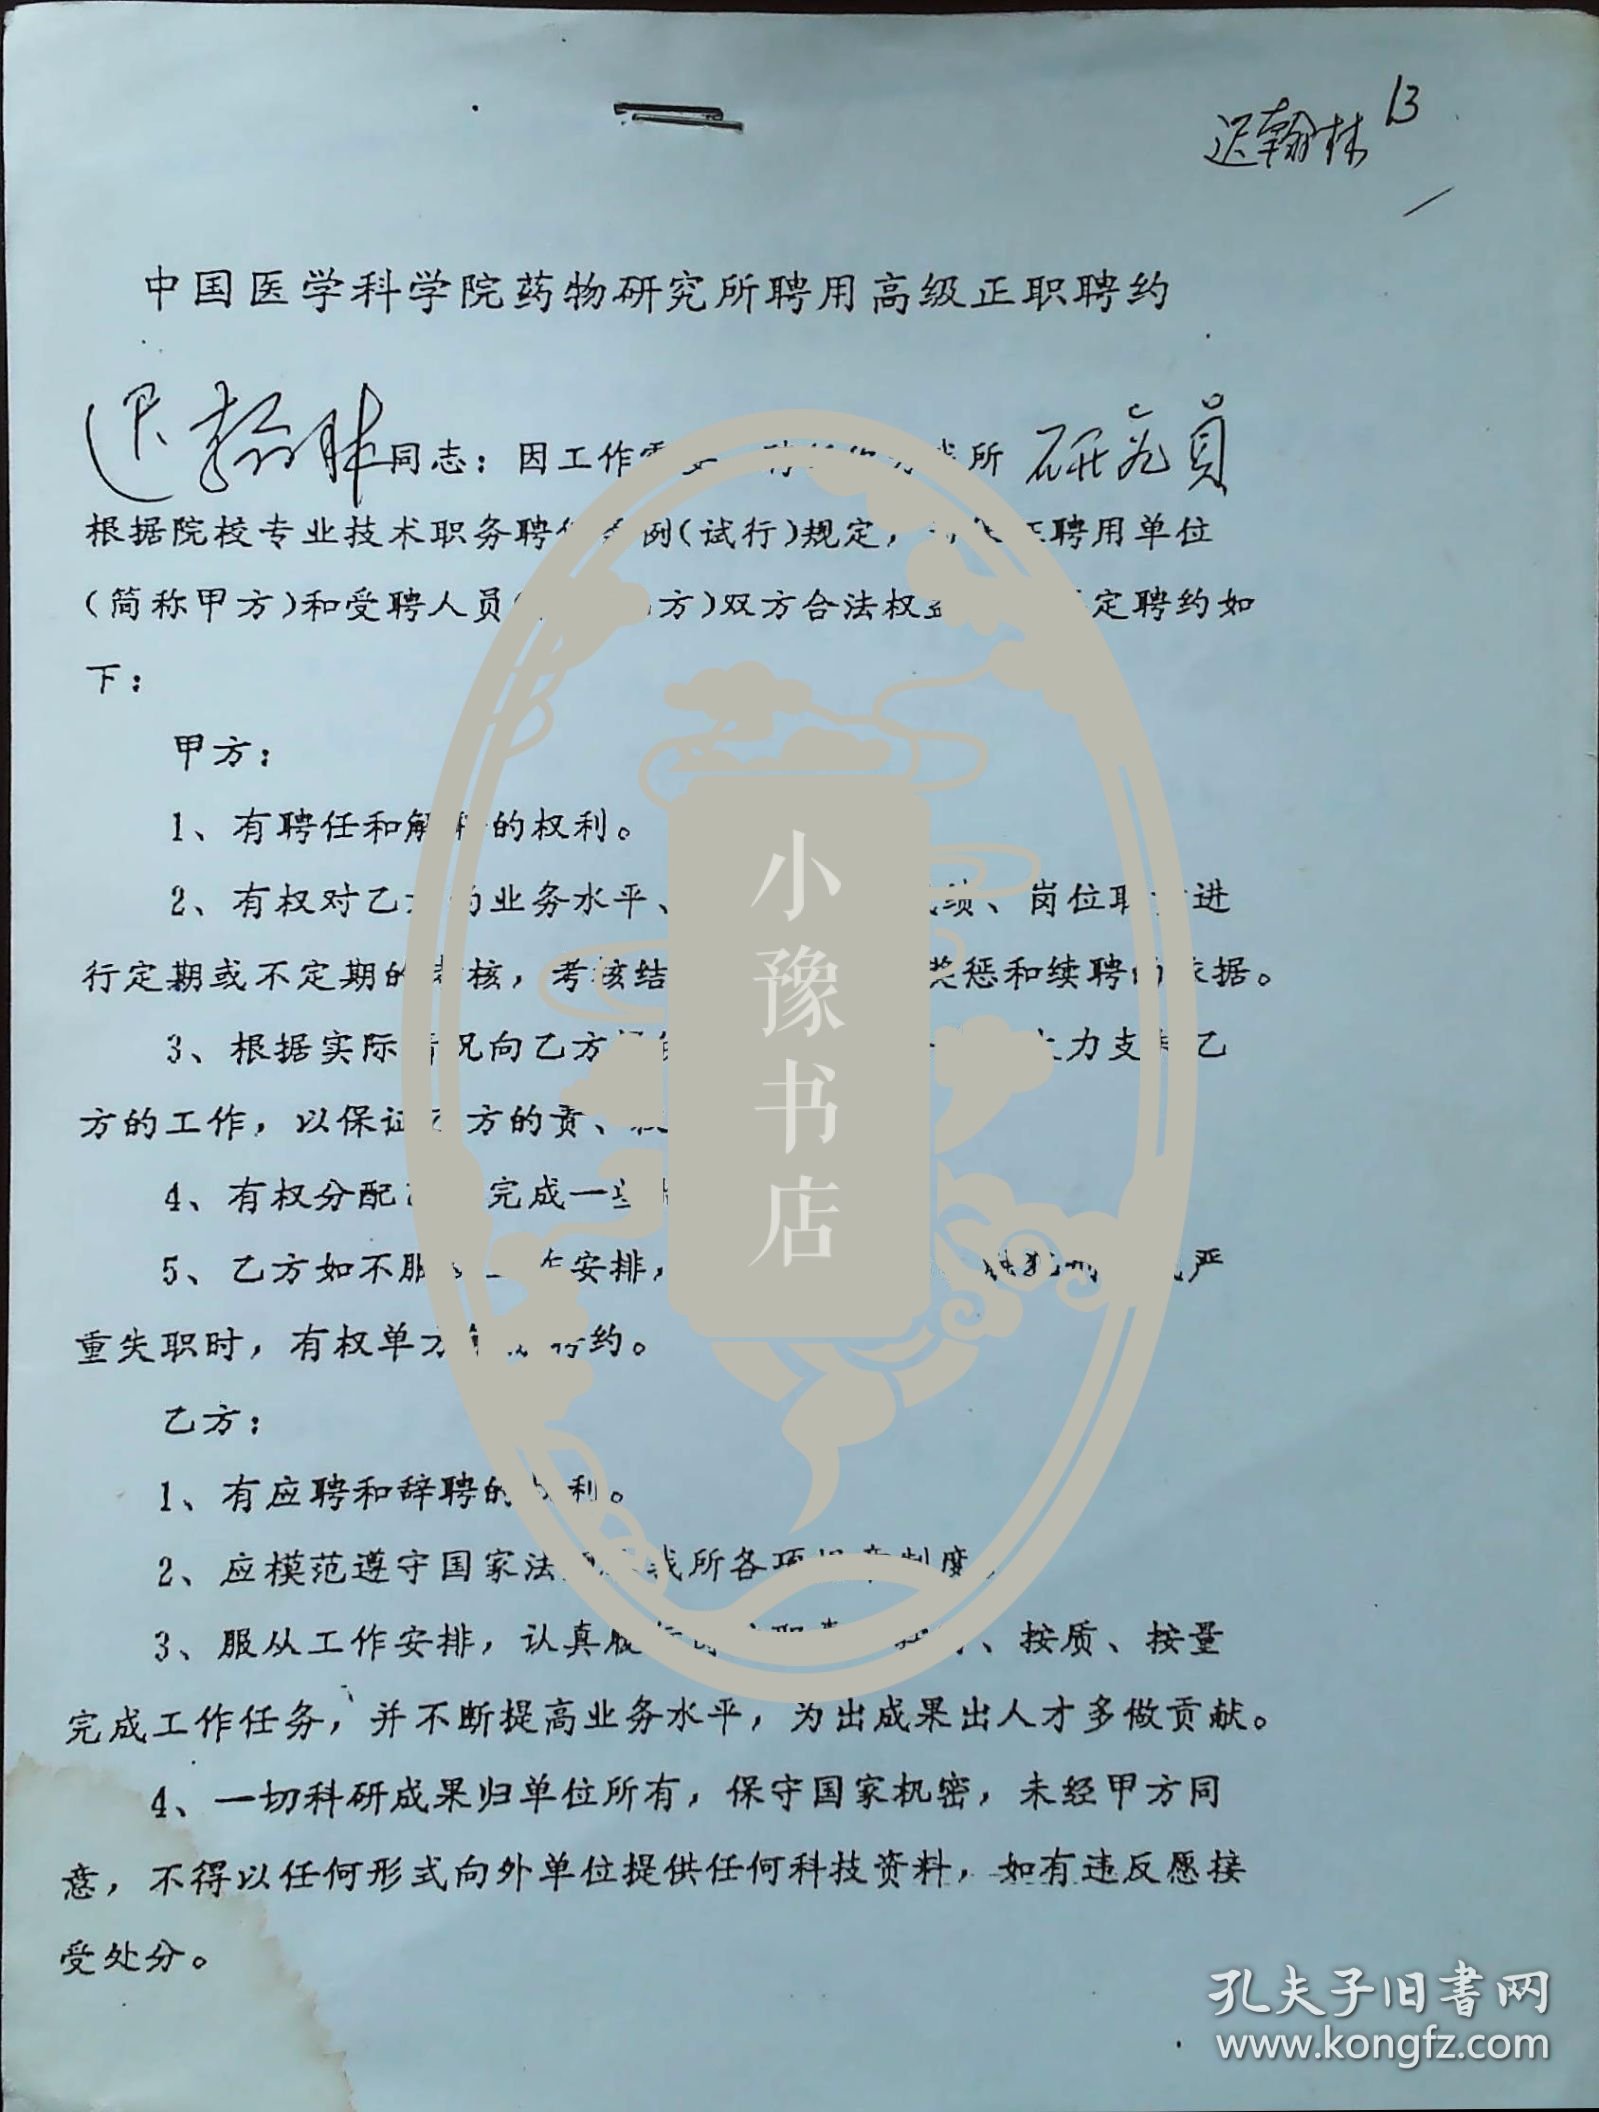 迟翰林 13
中国医学科学院药物研究所聘用高级正职聘约
迟翰林同志：因工作 所 研究员
根据院校专业技术职务聘 例(试行)规定， 聘用单位
(简称甲方)和受聘人员 方)双方合法权 定聘约如
下：
甲方：
1、有聘任和解聘的权利。
2、有权对乙 的业务水平、 绩、岗位职 进
行定期或不定期的考核，考核结 奖惩和续聘的依据。
3、根据实际情况向乙方 力支 乙
方的工作，以保证乙方的责、
4、有权分配 完成一
5、乙方如不服 工作安排， 严
重失职时，有权单方 聘约。
乙方：
1、有应聘和辞聘的权利。
2、应模范遵守国家法 我所各项规章制度
3、服从工作安排，认真履 职责 、按质、按量
完成工作任务，并不断提高业务水平，为出成果出人才多做贡献。
4、一切科研成果归单位所有，保守国家机密，未经甲方同
意，不得以任何形式向外单位提供任何科技资料，如有违反愿接
受处分。
小豫书店
孔夫子旧书网
www.kongfz.com